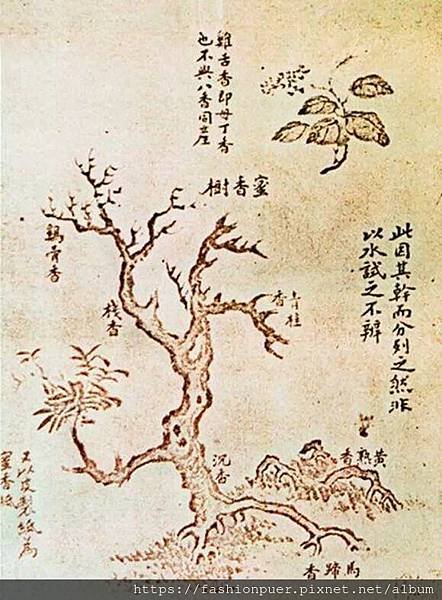 雞舌香即母丁香
也不與八香同產
蜜香樹
此因其幹而分別之然非
以水試之不辯
鷄骨香
棧香
青桂香
沉香
黃熟香
馬蹄香
又以皮製紙為
蜜香紙
https://fashionpuer.pixnet.net/album